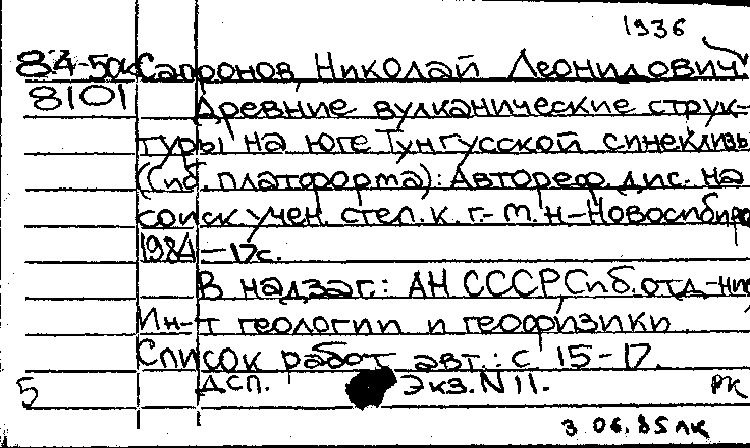 1936
84-50к Сапронов, Николай Леонидович
8101 Древние вулканические струк-
туры на юге Тунгусской синеклизы
(Сиб. платформа): Автореф. дис. на
соиск учен. степ. к. г.-м. н-Новосибирс
1984 -17с.
В надзаг.: АН СССР, Сиб. отд-ние
Ин-т геологии и геофизики
Список работ авт.: с 15-17.
5 ДСП. Экз. N 11. РК
3 06.85 лк